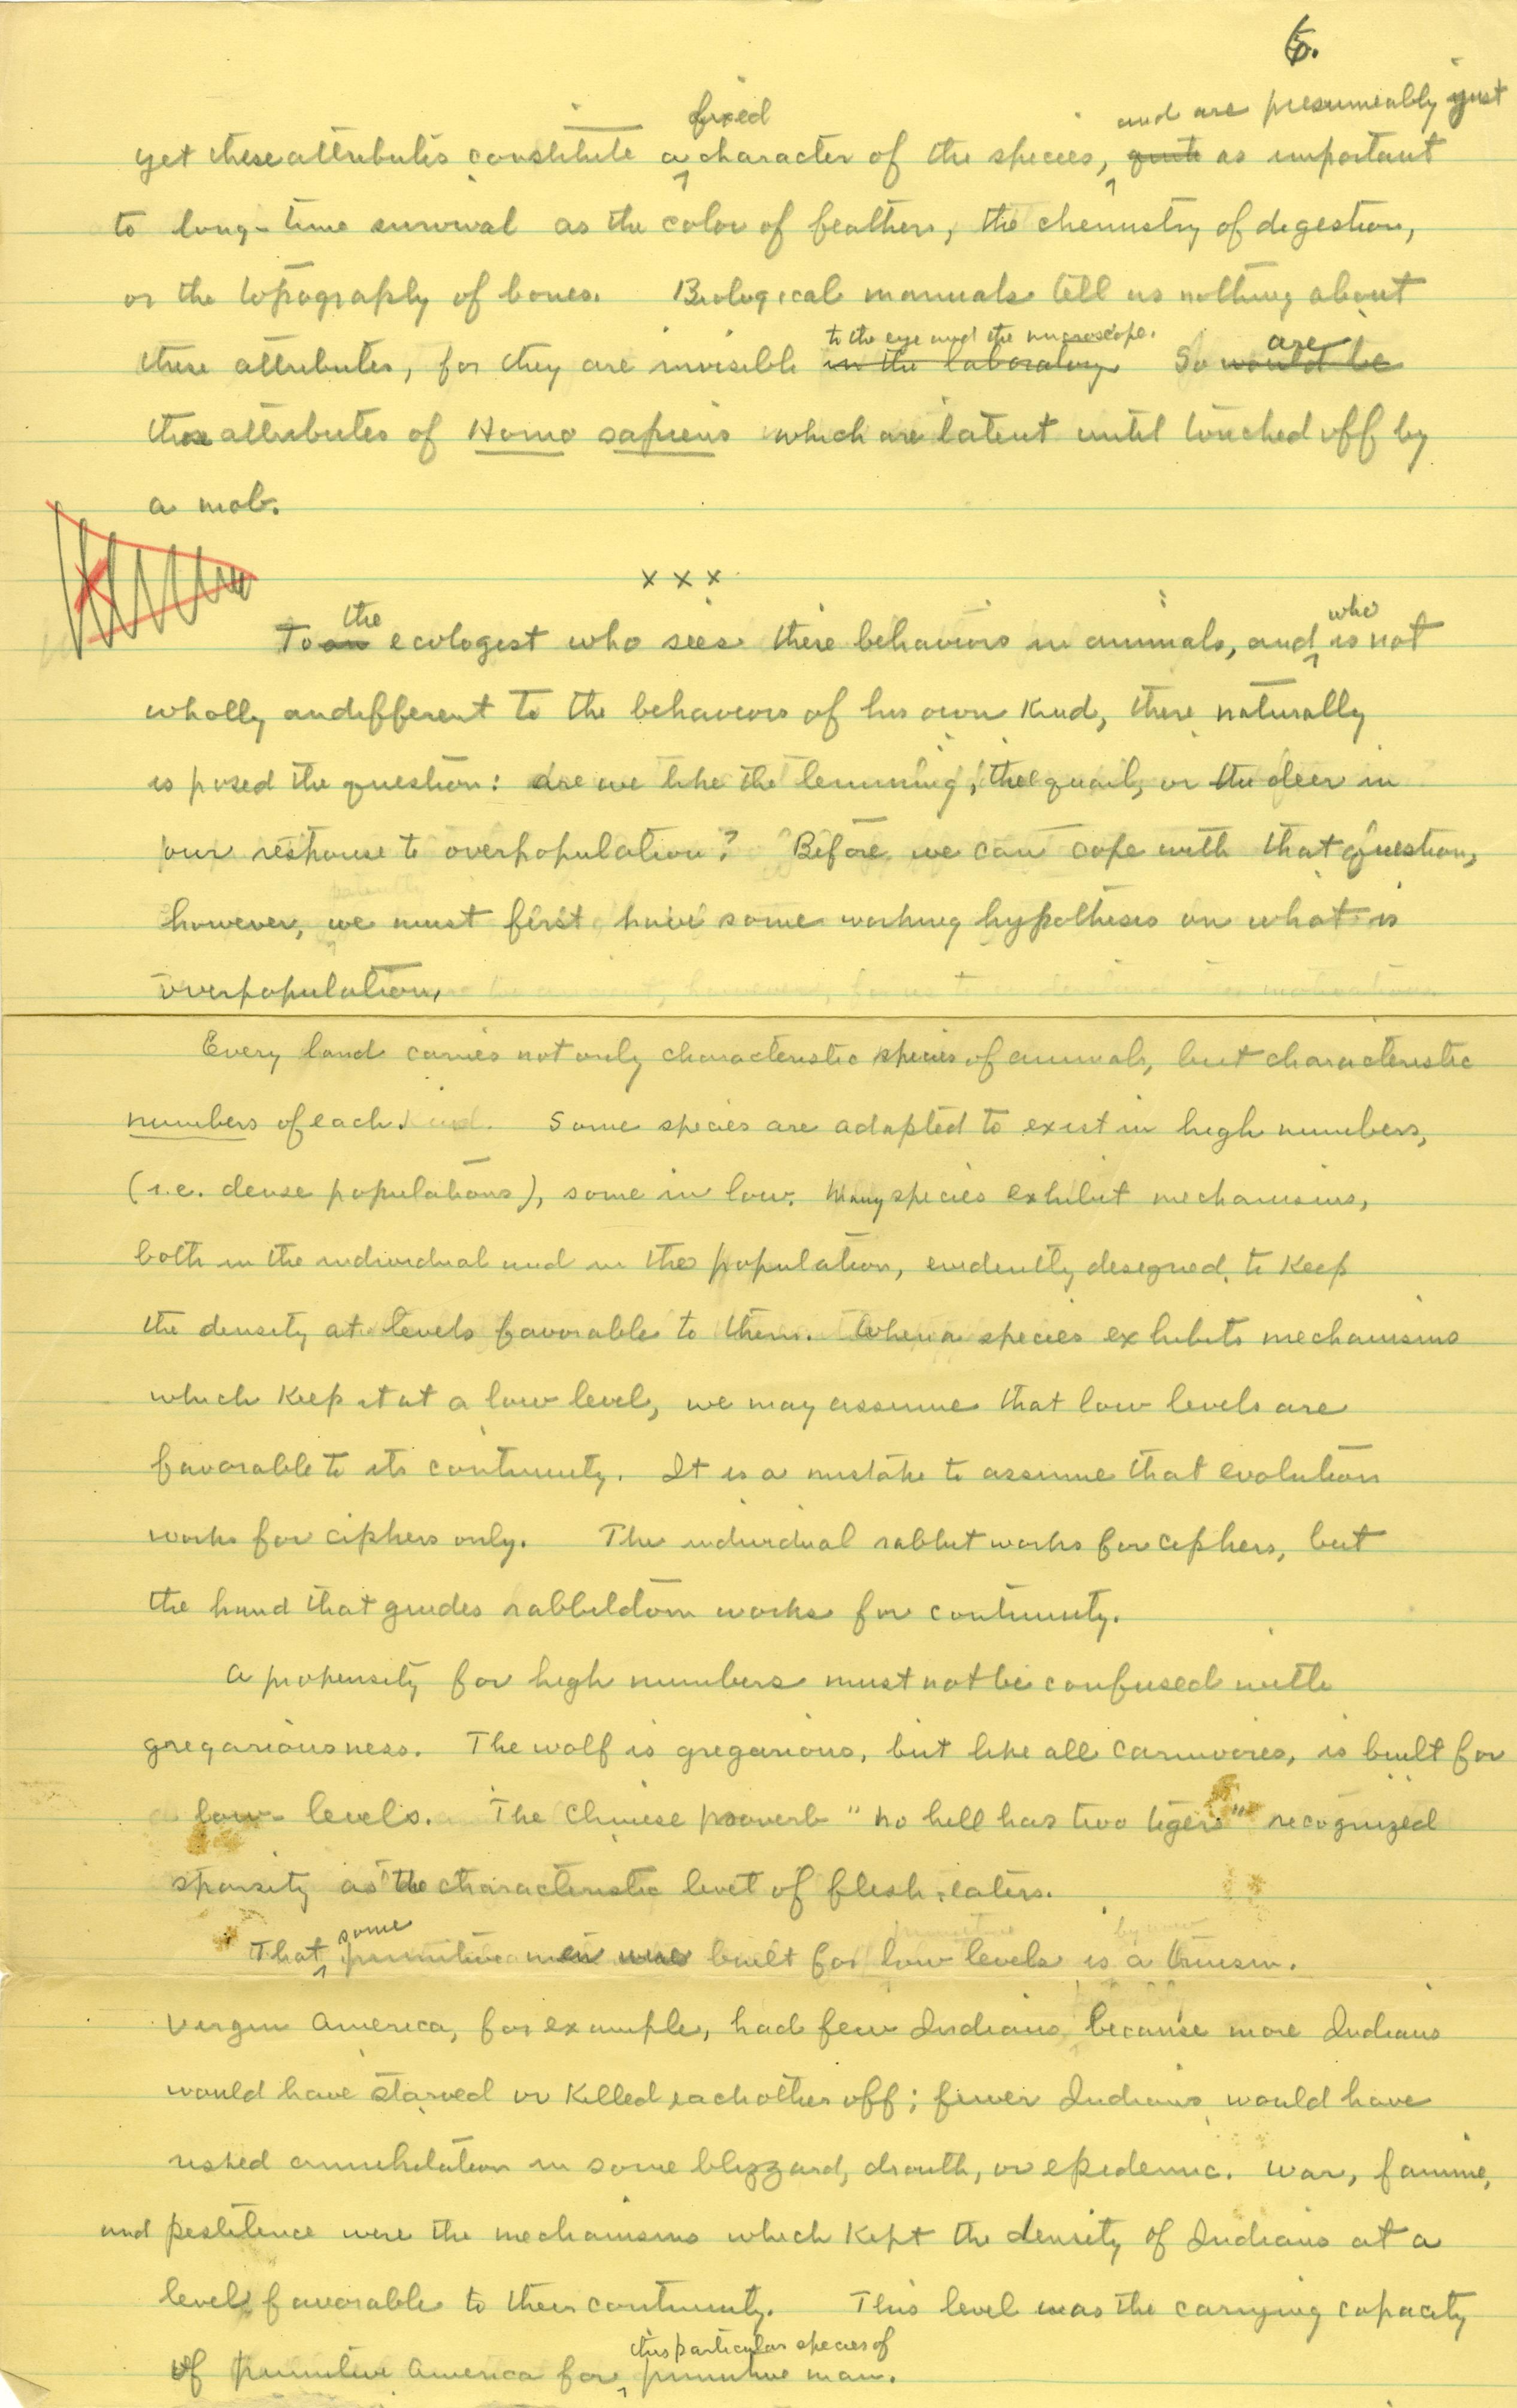 6.
fixed
and are presumeably just
yet these attributes constitute a character of the species, quite as important
to long-time survival as the color of feathers, the chemistry of digestion,
or the topography of bones. Biological manuals tell us nothing about
to the eye and the microscope.
are
these attributes, for they are invisible in the laboratory So would be
those attributes of Homo sapiens which are latent until touched off by
a mob.
x x x
the
who
To an ecologist who sees these behaviors in animals, and is not
wholly indifferent to the behaviors of his own kind, there naturally
is posed the question: are we like the lemming, the quail, or the deer in
our response to overpopulation? Before we can cope with that question,
patently
however, we must first have some working hypothesis on what is
overpopulation.
Every land carries not only characteristic species of animals, but characteristic
numbers of each kind. Some species are adapted to exist in high numbers,
(i.e. dense populations), some in low. Many species exhibit mechanisms,
both in the individual and in the population, evidently designed to keep
the density at levels favorable to them. When a species exhibits mechanisms
which keep it at a low level, we may assume that low levels are
favorable to its continuity. It is a mistake to assume that evolution
works for ciphers only. The individual rabbit works for ciphers, but
the hand that guides rabbitdom works for continuity.
A propensity for high numbers must not be confused with
gregariousness. The wolf is gregarious, but like all carnivores, is built for
low levels. The Chinese proverb "no hill has two tigers" recognized
sparsity as the characteristic level of flesh-eaters.
some
That primitive men were built for low levels is a truism.
Virgin America, for example, had few Indians because more Indians
would have starved or killed each other off; fewer Indians would have
risked annihilation in some blizzard, drouth, or epidemic. War, famine,
and pestilence were the mechanisms which kept the density of Indians at a
level favorable to their continuity. This level was the carrying capacity
this particular species of
of primitive America for primitive man.